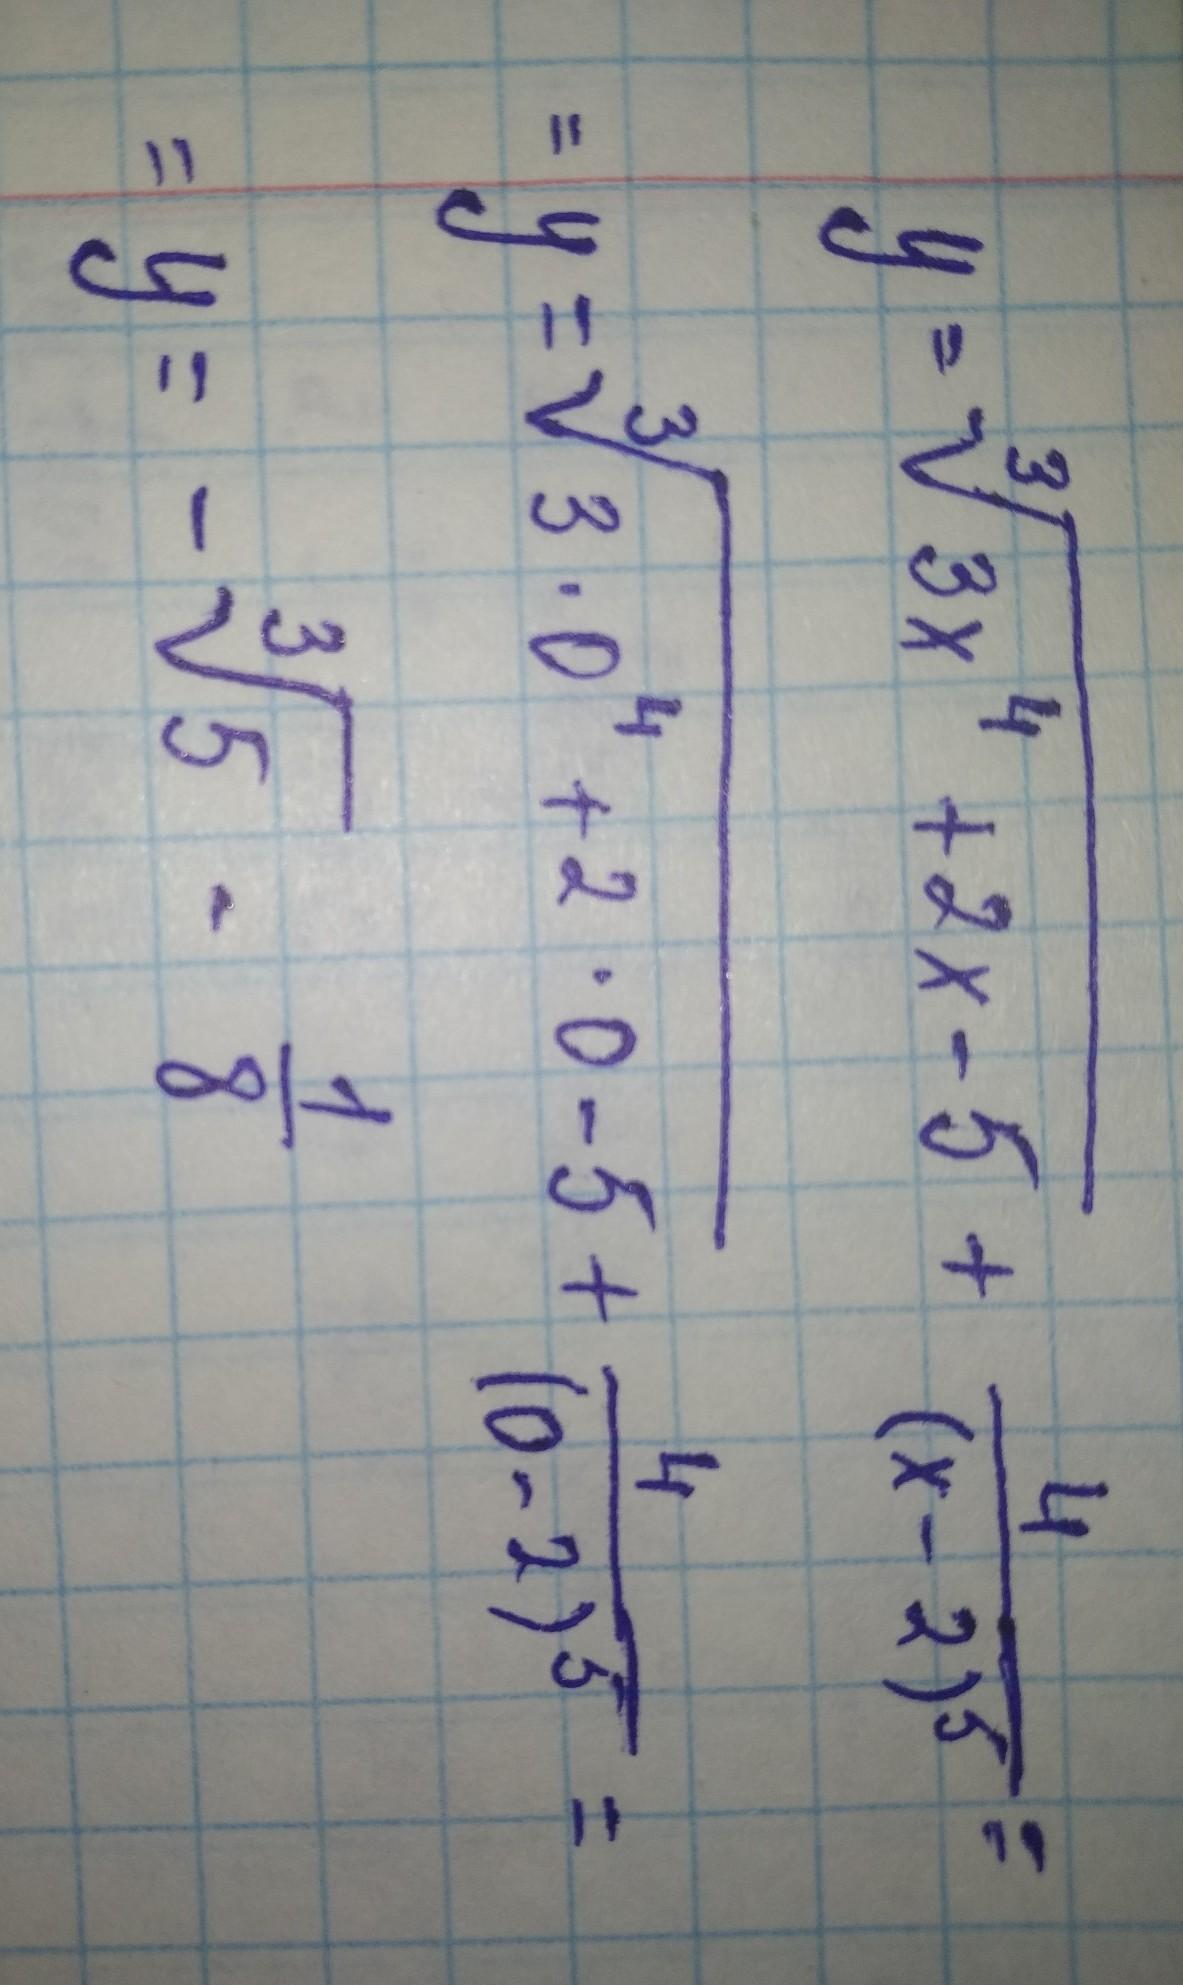 y = ∛(3x⁴ + 2x - 5) + 4/(x - 2)⁵ =
= y = ∛(3·0⁴ + 2·0 - 5) + 4/(0 - 2)⁵ =
= y = - ∛5 - 1/8